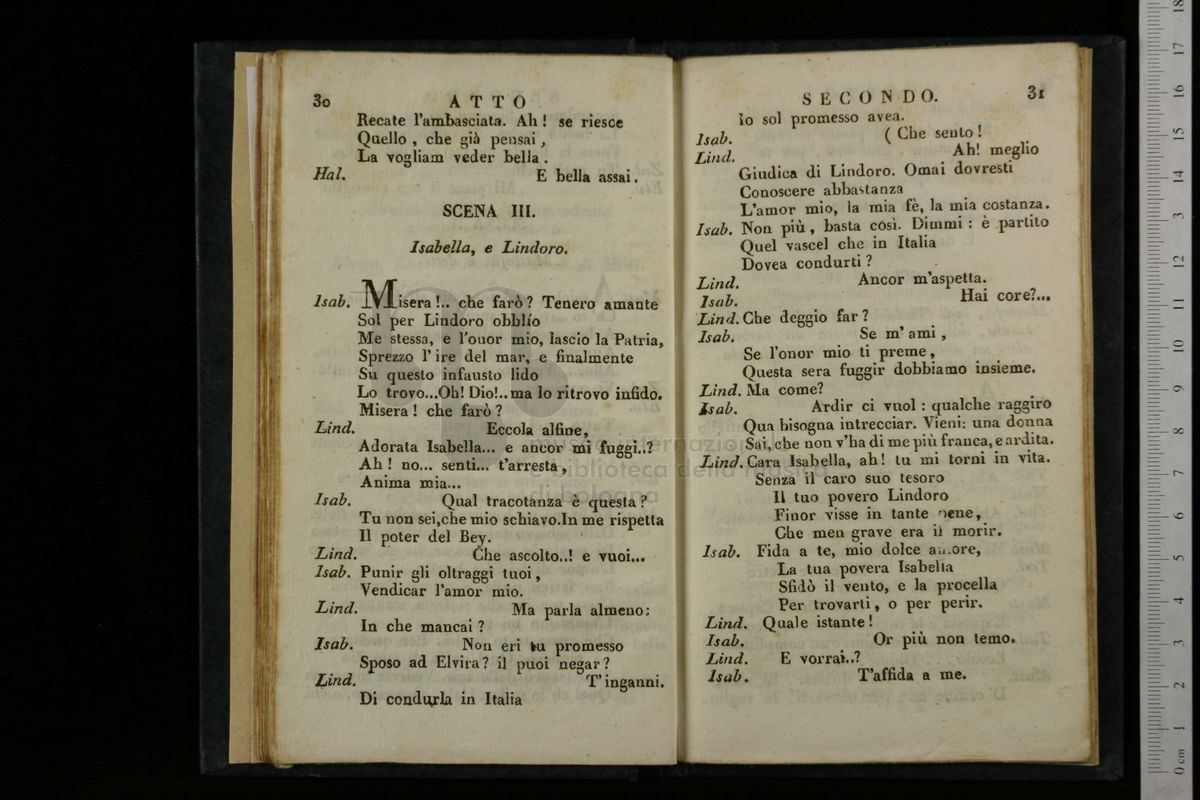 30
ATTO
Recate l'ambasciata. Ah! se riesce
Quello, che già pensai,
La vogliam veder bella.
Hal. E bella assai.
SCENA III.
Isabella, e Lindoro.
Isab. Misera!.. che farò? Tenero amante
Sol per Lindoro obblío
Me stessa, e l'onor mio, lascio la Patria,
Sprezzo l'ire del mar, e finalmente
Su questo infausto lido
Lo trovo...Oh! Dio!..ma lo ritrovo infido.
Misera! che farò?
Lind. Eccola alfine,
Adorata Isabella... e ancor mi fuggi..?
Ah! no... senti... t'arresta,
Anima mia...
Isab. Qual tracotanza è questa?
Tu non sei,che mio schiavo.In me rispetta
Il poter del Bey.
Lind. Che ascolto..! e vuoi...
Isab. Punir gli oltraggi tuoi,
Vendicar l'amor mio.
Lind. Ma parla almeno:
In che mancai?
Isab. Non eri tu promesso
Sposo ad Elvira? il puoi negar?
Lind. T'inganni.
Di condurla in Italia
SECONDO.
31
Io sol promesso avea.
Isab. (Che sento!
Lind. Ah! meglio
Giudica di Lindoro. Omai dovresti
Conoscere abbastanza
L'amor mio, la mia fè, la mia costanza.
Isab. Non più, basta così. Dimmi: è partito
Quel vascel che in Italia
Dovea condurti?
Lind. Ancor m'aspetta.
Isab. Hai core?...
Lind. Che deggio far?
Isab. Se m'ami,
Se l'onor mio ti preme,
Questa sera fuggir dobbiamo insieme.
Lind. Ma come?
Isab. Ardir ci vuol: qualche raggiro
Qua bisogna intrecciar. Vieni: una donna
Sai,che non v'ha di me più franca, e ardita.
Lind. Cara Isabella, ah! tu mi torni in vita.
Senza il caro suo tesoro
Il tuo povero Lindoro
Finor visse in tante pene,
Che men grave era il morir.
Isab. Fida a te, mio dolce amore,
La tua povera Isabella
Sfidò il vento, e la procella
Per trovarti, o per perir.
Lind. Quale istante!
Isab. Or più non temo.
Lind. E vorrai..?
Isab. T'affida a me.
museo internazionale
e biblioteca della musica
di bologna
0 cm 1 2 3 4 5 6 7 8 9 10 11 12 13 14 15 16 17 18